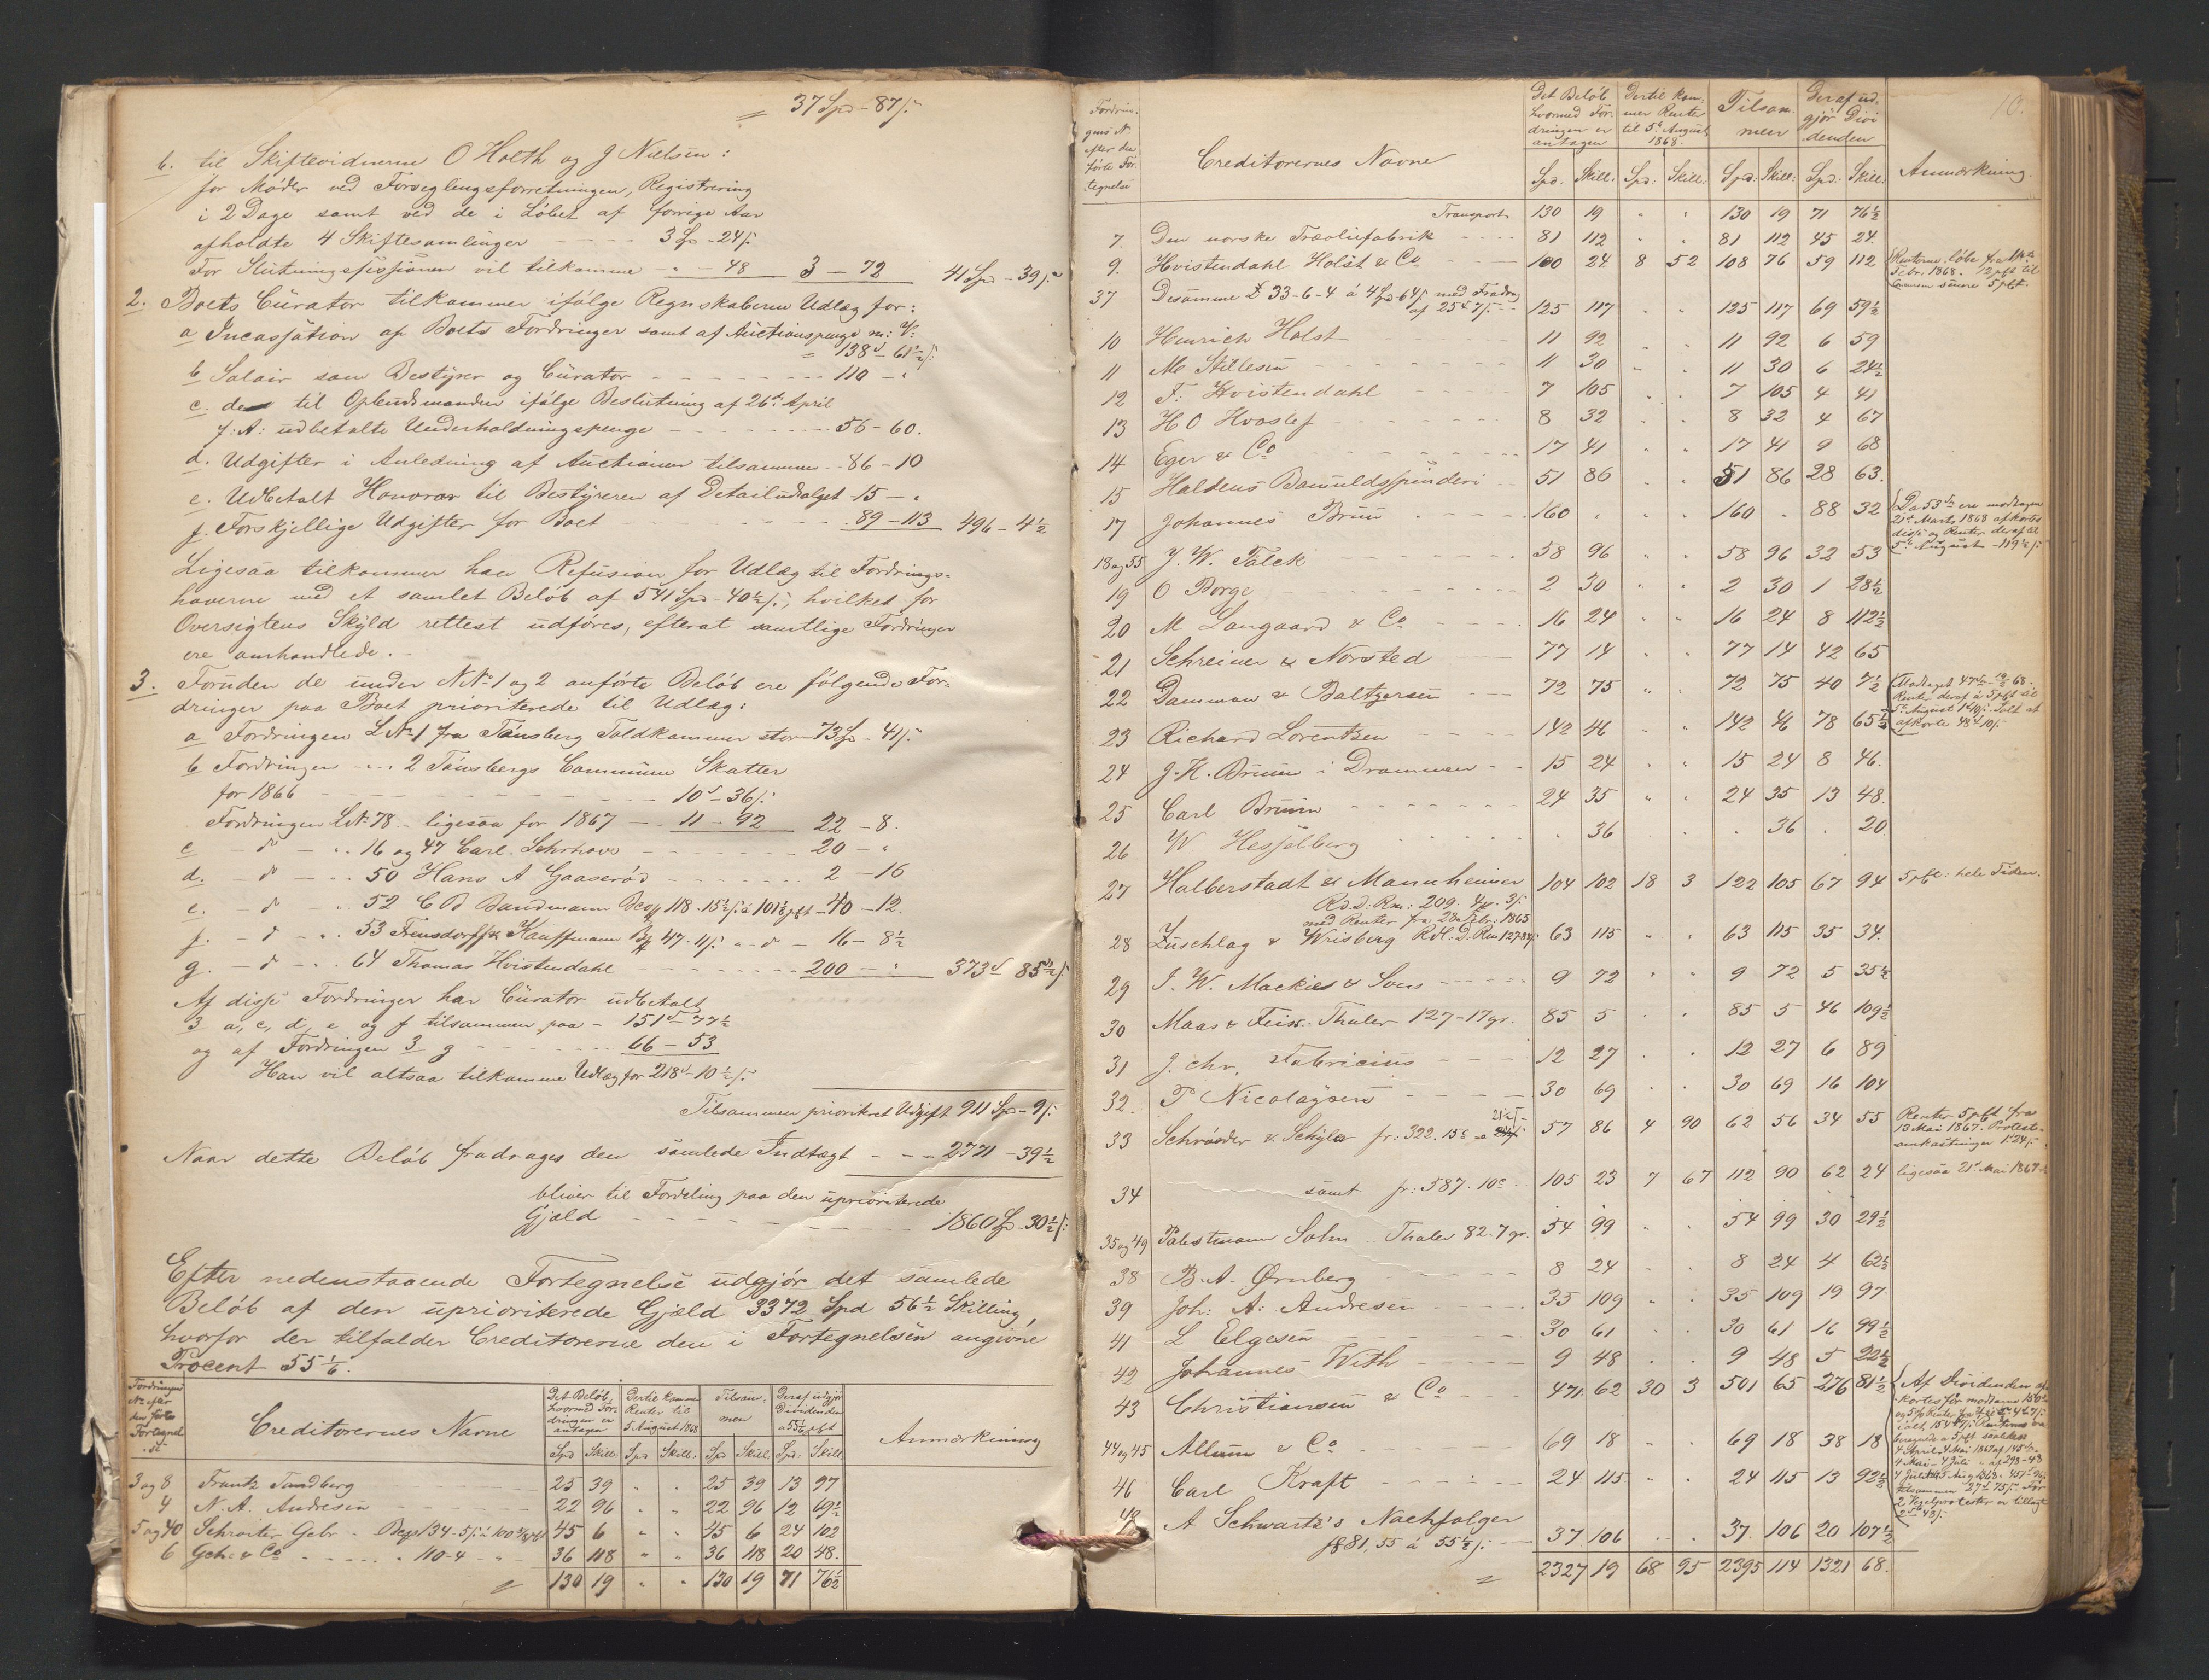 = 37 Spd - 87 s:
b. til Skiftevidnerne O Holth og J Nielsen:
for Møder ved Forseglingsforretningen, Registrering
i 2 Dage samt ved de i Løbet af forrige Aar
afholdte 4 Skiftesamlinger - - - - 3 Sp - 24 s:
For Slutningssessionen vil tilkomme - " - 48 3 - 72 41 Spd - 39 s:
2. Boets Curator tilkommer ifølge Regnskaberne Udlæg for:
a Incassation af Boets Fordringer samt af Auctionspenge m: V:
= 138 - 61 1/2 s:
b Salair som Bestyrer og Curator - - - - - 110 - "
c. de til Opbudsmanden ifølge Beslutning af 26de April
f: A: udbetalte Underholdningspenge - - - - - 56 - 60.
d. Udgifter i Anledning af Auctionen tilsammen - 86 - 10
e. Udbetalt Honorar til Bestyreren af Detailudsalget - 15 - "
f. Forskjellige Udgifter for Boet - - - - 89 - 113 496 - 4 1/2
Ligesaa tilkommer han Refusion for Udlæg til Fordrings-
haverne med et samlet Beløb af 541 Spd - 40 1/2 s:, hvilket for
Oversigtens Skyld rettest udføres, efterat samtlige Fordringer
ere omhandlede. -
3. Foruden de under N No 1 og 2 anførte Beløb ere følgende For-
dringer paa Boet prioriterede til Udlæg:
a Fordringen L No 1 fra Tønsberg Toldkammer stor - 73 Sp - 41 s:
b Fordringen - " - 2 Tønsbergs Commune Skatter
for 1866 - - - - - 10 - 36 s:
Fordringen L No 78 - ligesaa for 1867 - - 11 - 92 22 - 8.
c - d - " 16 og 47 Carl Lehrhove - - - - 20 - "
d. - d - " 50 Hans A Gaaserød - - - - 2 - 16
e. - d - " 52 C B Bandmann Bco 118 . 15 1/2 s: á 101 1/8 pCt - 40 - 12.
f. - d - " 53 Frensdorff & Kauffmann 47 . 11 s: " d - 16 - 8 1/2
g. - d - " 64 Thomas Hvistendahl - - - - 200 - " 373 85 1/2 s:
Af disse Fordringer har Curator udbetalt
3 a, c, d, e og f tilsammen paa - 151 - 77 1/2
og af Fordringen 3 g - - - - 66 - 53
Han vil altsaa tilkomme Udlæg for 218 - 10 1/2 s:
Tilsammen prioriteret Udgift 911 Spd - 9 s:
Naar dette Beløb fradrages den samlede Indtægt - - - 2771 - 39 1/2
bliver til Fordeling paa den uprioriterede
Gjæld - - - - - 1860 Sp - 30 1/2 s:
Efter nedenstaaende Fortegnelse udgjør det samlede
Beløb af den uprioriterede Gjæld 3372 Spd 56 1/2 Skilling,
hvorfor der tilfalder Creditorerne den i Fortegnelsen angivne
Procent 55 1/6.
Fordringens No efter den førte Fortegnelse Creditorernes Navne Det Beløb, hvormed Fordringen er antagen Dertil kommer Renter til 5 August 1868 Tilsammen Deraf udgjør Dividenden a 55 1/6 pCt Anmærkning
Spd Skill: Spd Skill: Spd Skill: Spd: Skill:
3 og 8 Frantz Tandberg 25 39 " " 25 39 13 97
4 N. A. Andresen 22 96 " " 22 96 12 69 1/2
5 og 40 Schrøiter Gebr - Bco 134 - 5 s: á 100 45 6 " " 45 6 24 102
6 Geh: & Co - - - " 110 - 4 - " 36 118 " " 36 118 20 48.
= 130 19 " " 130 19 71 76 1/2
10.
Fordringens No efter den førte Fortegnelse Creditorernes Navne Det Beløb hvormed Fordringen er antagen Dertil kommer Renter til 5te August 1868. Tilsammen Deraf udgjør Dividenden Anmærkning.
Spd: Skill: Spd: Skill: Spd: Skill: Spd: Skill:
Transport 130 19 " " 130 19 71 76 1/2
7. Den norske Træoliefabrik 81 112 " " 81 112 45 24.
9. Hvistendahl Holst & Co 100 24 8 52 108 76 59 112 Renterne løbe fra
Febr. 1868. 12 pCt til
senere 5 pCt.
37 Desamme £ 33-6-4 á 4 Sp 64 s: med Fradrag
af 25 7 s: - 125 117 " " 125 117 69 59 1/2
10 Henrich Holst 11 92 " " 11 92 6 59
11 M Stillesen 11 30 " " 11 30 6 24 1/2
12 F: Hvistendahl 7 105 " " 7 105 4 41
13 H O Hvoslef 8 32 " " 8 32 4 67
14 Eger & Co 17 41 " " 17 41 9 68
15 Haldens Bomuldsspinderi 51 86 " " 51 86 28 63.
17 Johannes Bruu 160 " " " 160 " 88 32 Da 53 ere modtagen
21de Marts 1868 afkortes
disse og Renter deraf til
5te August - 119 1/2 s:
18 og 55 J. W. Falck 58 96 " " 58 96 32 53
19 O Borge 2 30 " " 2 30 1 28 1/2
20 M Langaard & Co 16 24 " " 16 24 8 112 1/2
21 Schreiner & Norsted 77 14 " " 77 14 42 65
22 Damman & Baltzersen 72 75 " " 72 75 40 7 1/2 Modtaget 47 68.
Renter deraf á 5 pCt til
5te August 1 10 s: Ialt at
afkorte 48 10 s:
23 Richard Lorentzen 142 46 " " 142 46 78 65 1/2
24 J. H. Bruun i Drammen 15 24 " " 15 24 8 46.
25 Carl Bruun 24 35 " " 24 35 13 48.
26 W Hesselberg " 36 " " " 36 " 20.
27 Halberstadt & Mannheimer 104 102 18 3 122 105 67 94 5 pCt: hele Tiden.
Rd. D: Rm: 209. 4 . 3 s:
med Renter fra 28 Febr: 1865
28 Zuschlag & Wrisberg Rdl: D: Rm 127 63 115 " " 63 115 35 34.
29 J. W. Mackies & Sons 9 72 " " 9 72 5 35 1/2
30 Maas & Feist. Thaler 127-17 gr. 85 5 " " 85 5 46 109 1/2
31 J. Chr. Fabricius 12 27 " " 12 27 6 89
32. P Nicolaysen 30 69 " " 30 69 16 104
33 Schrøder & Schyler fr: 322. 15 c a 21 1/2 s: 57 86 4 90 62 56 34 55 Renter 5 pCt fra
13 Mai 1867. Protest-
omkostninger 1 24 s:
34 samt fr: 587. 10 c - 105 23 7 67 112 90 62 24 ligesaa 21de Mai 1867
35 og 49 Pabstmann Sohn .. Thaler 82-7 gr. 54 99 " " 54 99 30 29 1/2
38 B. A. Ørnberg 8 24 " " 8 24 4 62 1/2
39 Joh: A: Andresen 35 109 " " 35 109 19 97
41 L Elgesen 30 61 " " 30 61 16 99 1/2
42 Johannes With 9 48 " " 9 48 5 22 1/2
43 Christiansen & Co 471 62 30 3 501 65 276 81 1/2 Af Dividenden af-
kortes før modtagne 150
og 5 % Renter
beregnede a 5 pCt saaledes
4 April - 4 Mai 1867 af 145
4 Mai - 4 Juli " af 298-48
4 Juli 5 Aug 1868.
tilsammen 27 75 s: For
2 Vexelprotester er tillagt
2 48 s:
44 og 45 Allum & Co 69 18 " " 69 18 38 18
46 Carl Kraft 24 115 " " 24 115 13 92 1/2
48 A Schwartz's Nachfolger
81, 55 á 55 1/2 s: 37 106 " " 37 106 20 107 1/2
= 2327 19 68 95 2395 114 1321 68.